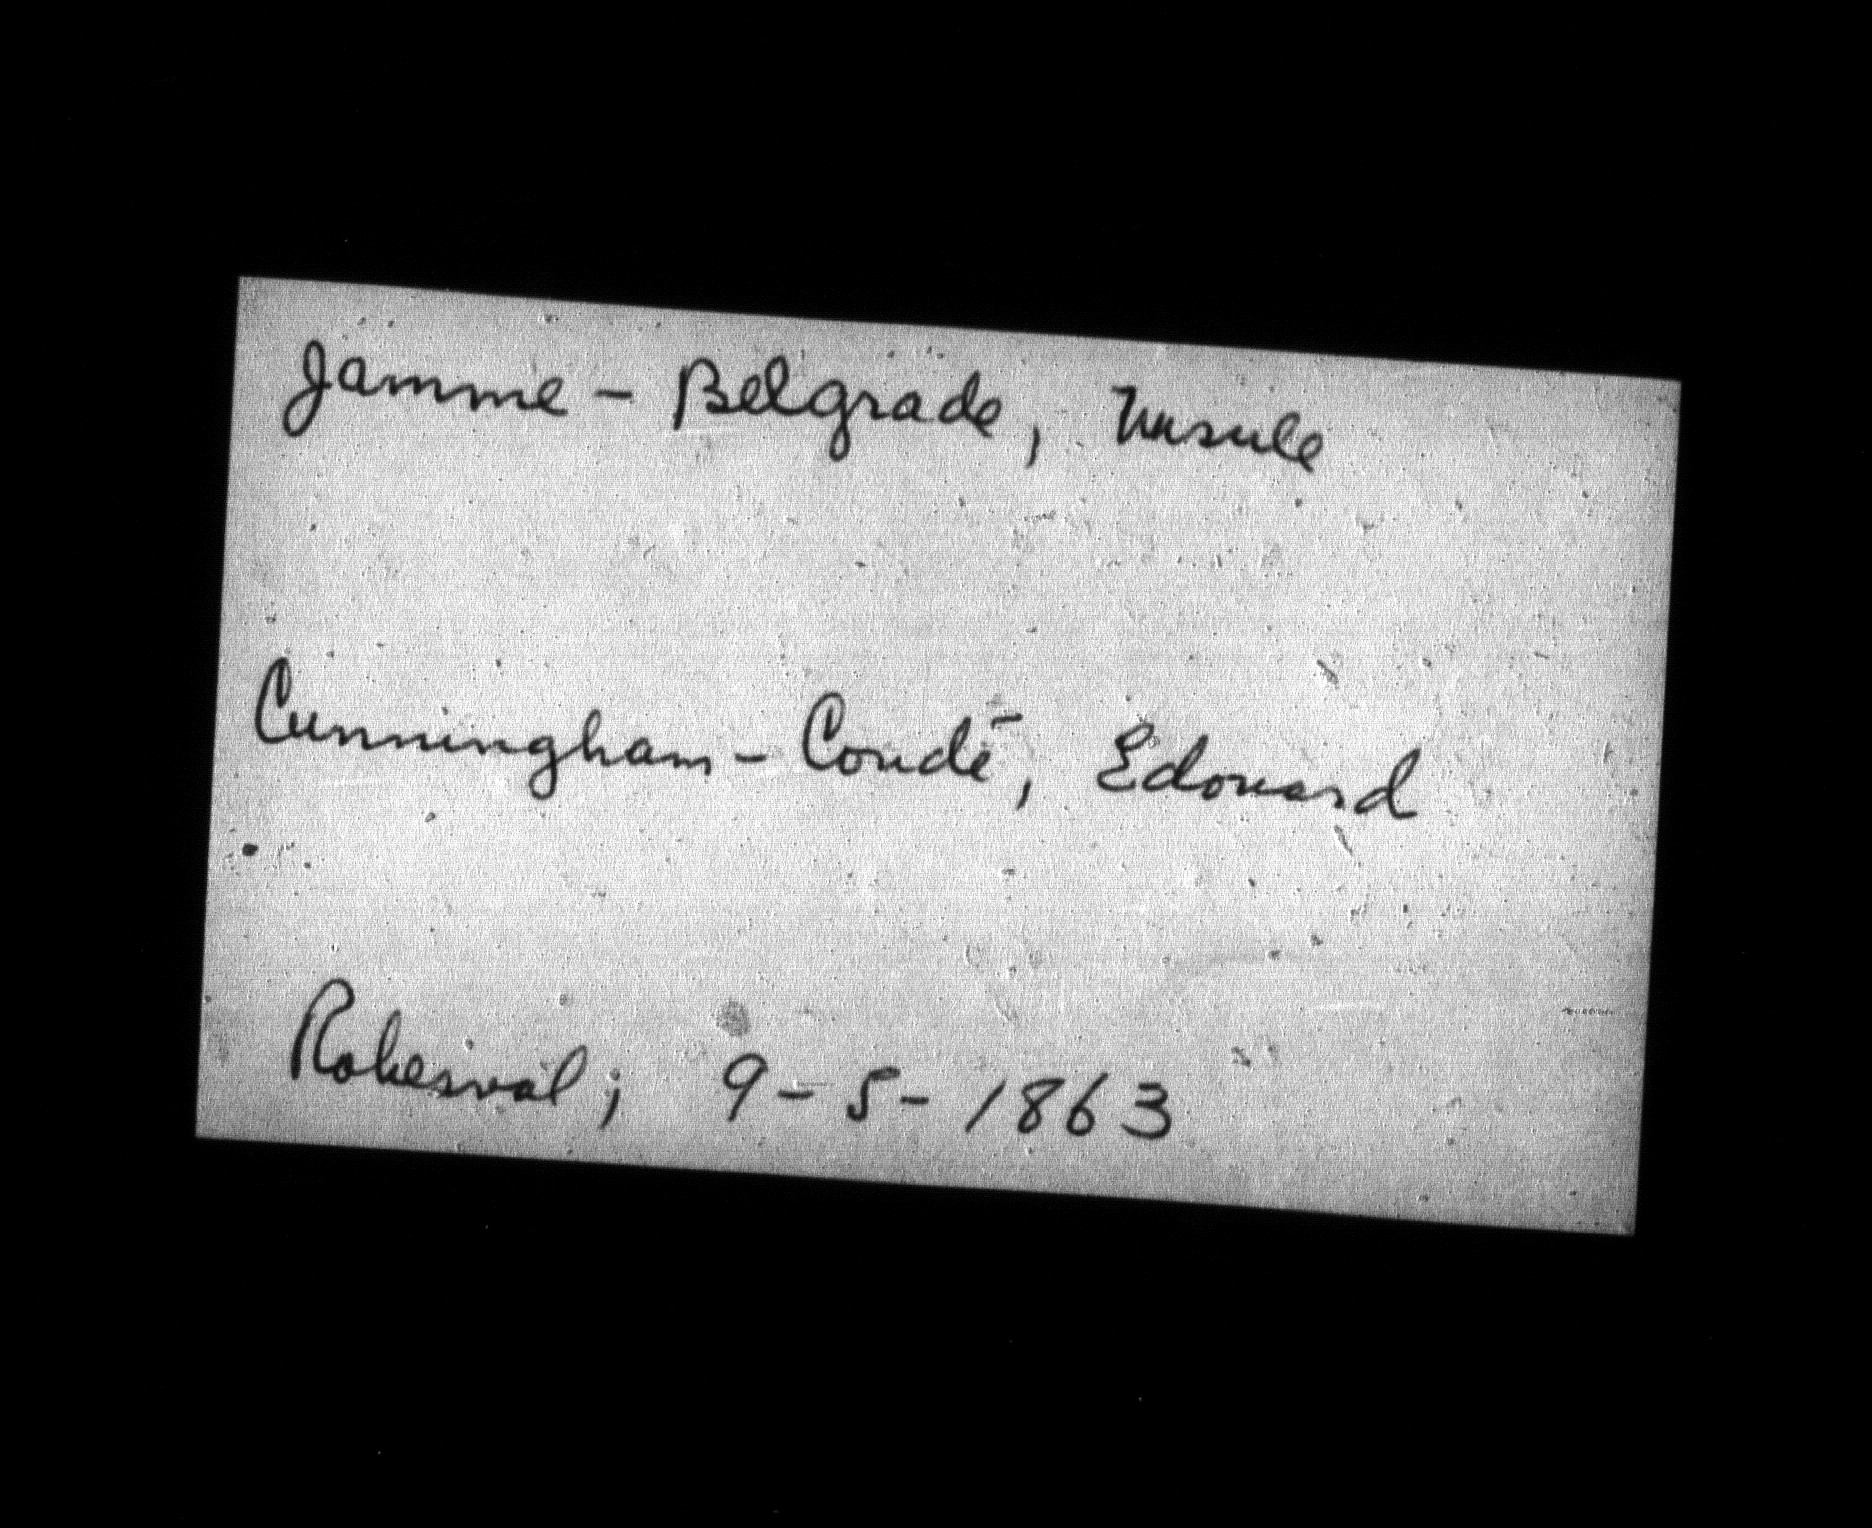 Jamme - Belgrade, Ursule
Cunningham - Condé, Edouard
Roberval; 9-5-1863